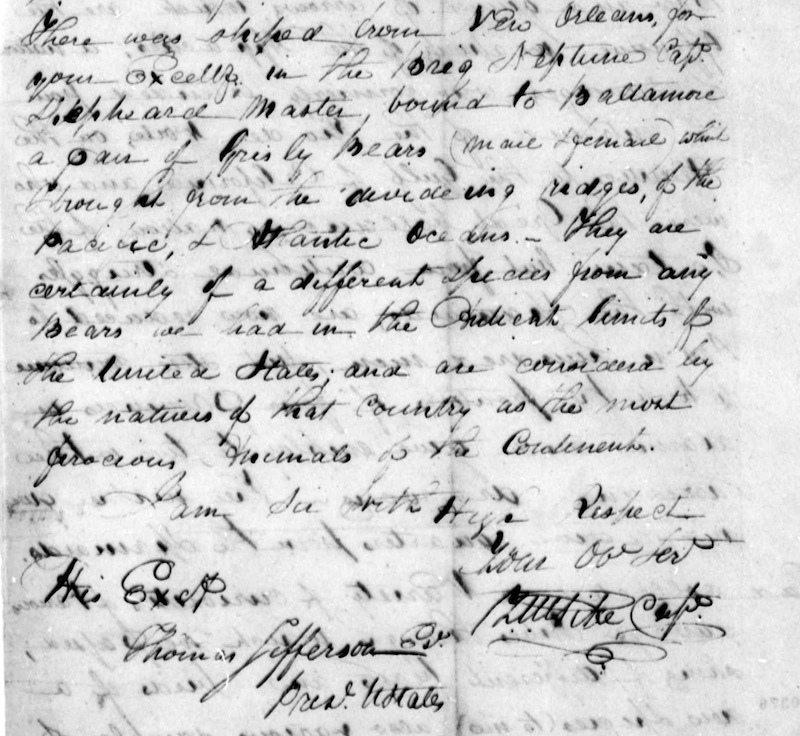 There was shiped from New Orleans, for
your Excellcy. in the Brig Neptune Capt.
Shepheard Master, bound to Baltamore
a pair of Grisly Bears (male & female) which I
brought from the divideing ridges, of the
Pacific, & Atlantic Oceans - They are
certainly of a different Species from any
Bears we had in the Antient limits of
the United States; and are considerd by
the natives of that Country as the most
ferocious Animals of the Continent.
I am Sir With High Respect
Your Obt. Servt.
His Excy
Z M Pike Capt.
Thomas Jefferson Esr.
Prest. U States